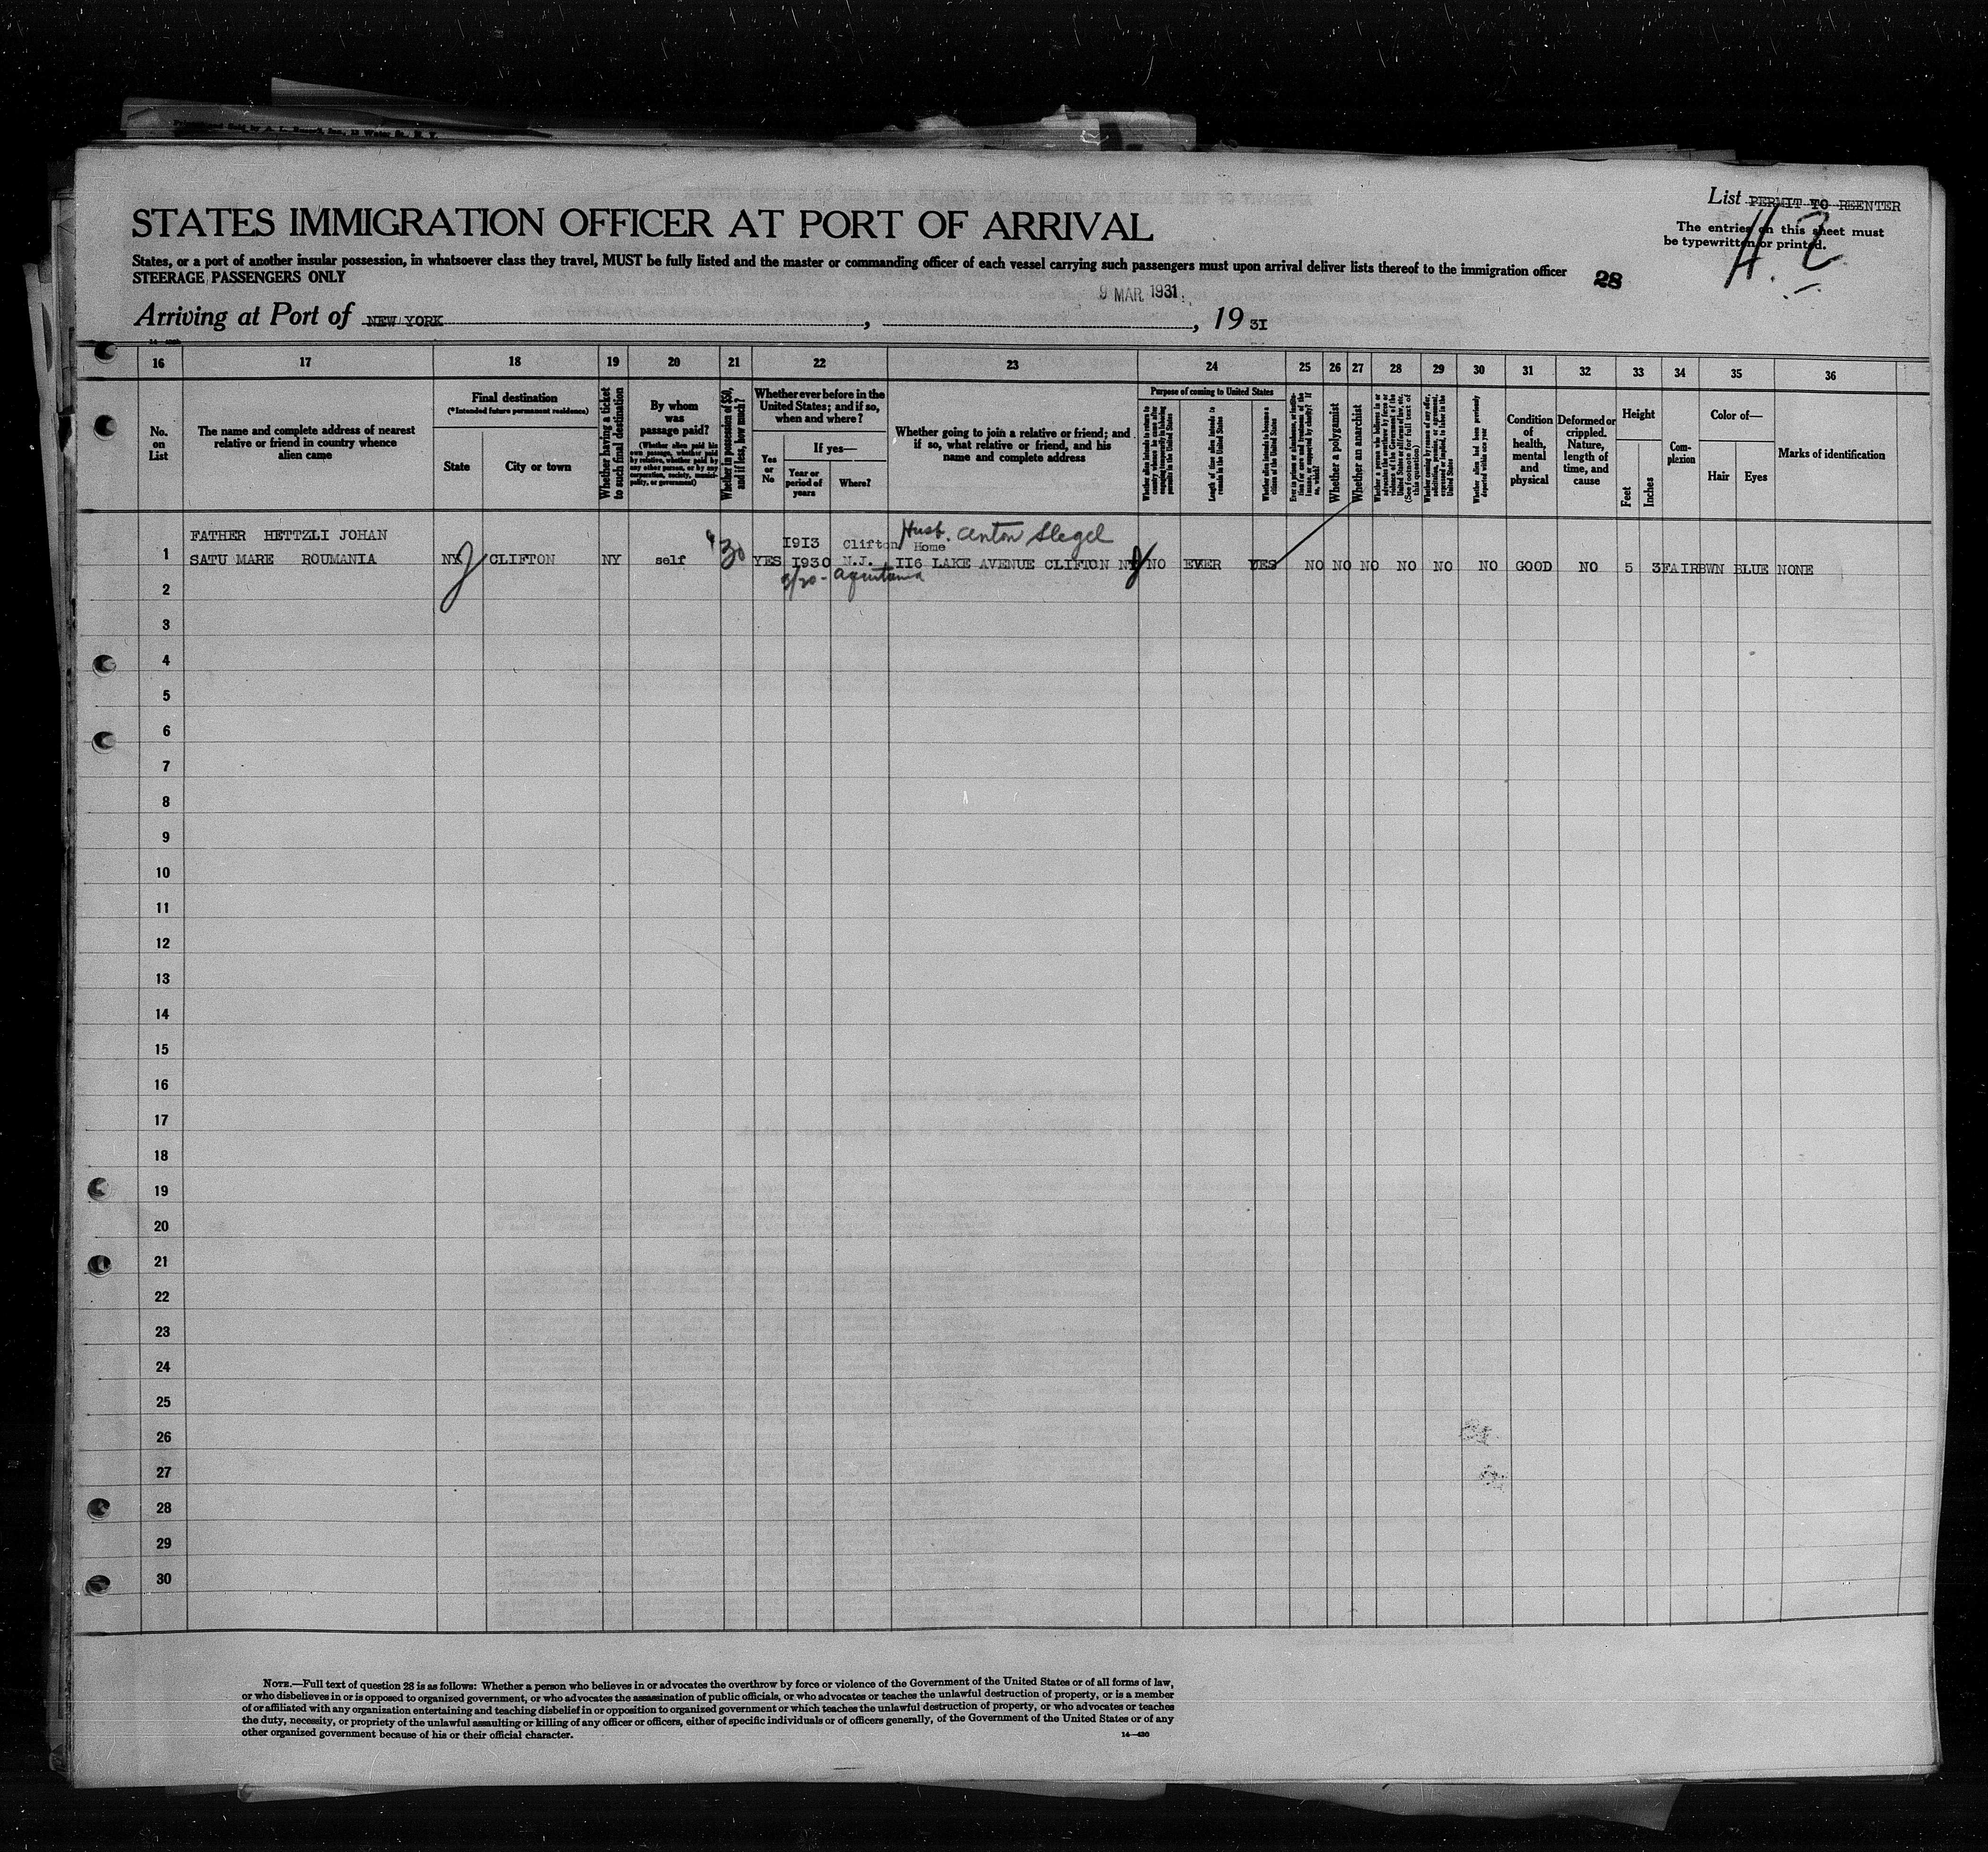 Printed and Sold by A. L. Russell, Inc., 12 Water St. N. Y.
List PERMIT TO REENTER
H. 2
The entries on this sheet must
be typewritten or printed.
STATES IMMIGRATION OFFICER AT PORT OF ARRIVAL
States, or a port of another insular possession, in whatsoever class they travel, MUST be fully listed and the master or commanding officer of each vessel carrying such passengers must upon arrival deliver lists thereof to the immigration officer
STEERAGE PASSENGERS ONLY
28
9 MAR. 1931
Arriving at Port of NEW YORK, , 19 31
16 17 18 19 20 21 22 23 24 25 26 27 28 29 30 31 32 33 34 35 36
No.
on
List
The name and complete address of nearest
relative or friend in country whence
alien came
Final destination
(*Intended future permanent residence)
State
City or town
Whether having a ticket
to such final destination
By whom
was
passage paid?
(Whether alien paid his
own passage, whether paid
by relative, whether paid by
any other person, or by any
corporation, society, munici-
pality, or government)
Whether in possession of $50,
and if less, how much?
Whether ever before in the
United States; and if so,
when and where?
Yes
or
No
If yes—
Year or
period of
years
Where?
Whether going to join a relative or friend; and
if so, what relative or friend, and his
name and complete address
Purpose of coming to United States
Whether alien intends to return to
country whence he came after
engaging temporarily in laboring
pursuits in the United States
Length of time alien intends to
remain in the United States
Whether alien intends to become a
citizen of the United States
Ever in prison or almshouse, or institu-
tion for care and treatment of the
insane, or supported by charity? If
so, which?
Whether a polygamist
Whether an anarchist
Whether a person who believes in or
advocates the overthrow by force or
violence of the Government of the
United States or all forms of law, etc.
(See footnote for full text of
this question)
Whether coming by reason of any offer,
solicitation, promise, or agreement,
expressed or implied, to labor in the
United States
Whether alien had been previously
deported within one year
Condition
of
health,
mental
and
physical
Deformed or
crippled.
Nature,
length of
time, and
cause
Height
Feet
Inches
Com-
plexion
Color of—
Hair
Eyes
Marks of identification
FATHER HETTZLI JOHAN
1913 Clifton Husb. Anton Slegel
Home
1 SATU MARE ROUMANIA NY CLIFTON NY self $30 YES 1930 N.J. II6 LAKE AVENUE CLIFTON NY NO EVER YES NO NO NO NO NO NO GOOD NO 5 3 FAIR BWN BLUE NONE
8/20 - Aquitania
2
3
4
5
6
7
8
9
10
11
12
13
14
15
16
17
18
19
20
21
22
23
24
25
26
27
28
29
30
NOTE.—Full text of question 28 is as follows: Whether a person who believes in or advocates the overthrow by force or violence of the Government of the United States or of all forms of law,
or who disbelieves in or is opposed to organized government, or who advocates the assassination of public officials, or who advocates or teaches the unlawful destruction of property, or is a member
of or affiliated with any organization entertaining and teaching disbelief in or opposition to organized government or which teaches the unlawful destruction of property, or who advocates or teaches
the duty, necessity, or propriety of the unlawful assaulting or killing of any officer or officers, either of specific individuals or of officers generally, of the Government of the United States or of any
other organized government because of his or their official character.
14—430